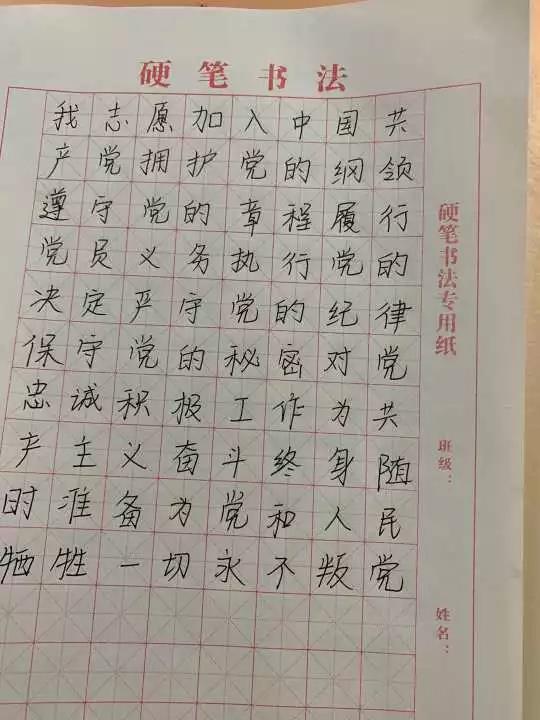 硬笔书法
我志愿加入中国共
产党拥护党的纲领
遵守党的章程履行
党员义务执行党的
决定严守党的纪律
保守党的秘密对党
忠诚积极工作为共
产主义奋斗终身随
时准备为党和人民
牺牲一切永不叛党
硬笔书法专用纸
班级：
姓名：